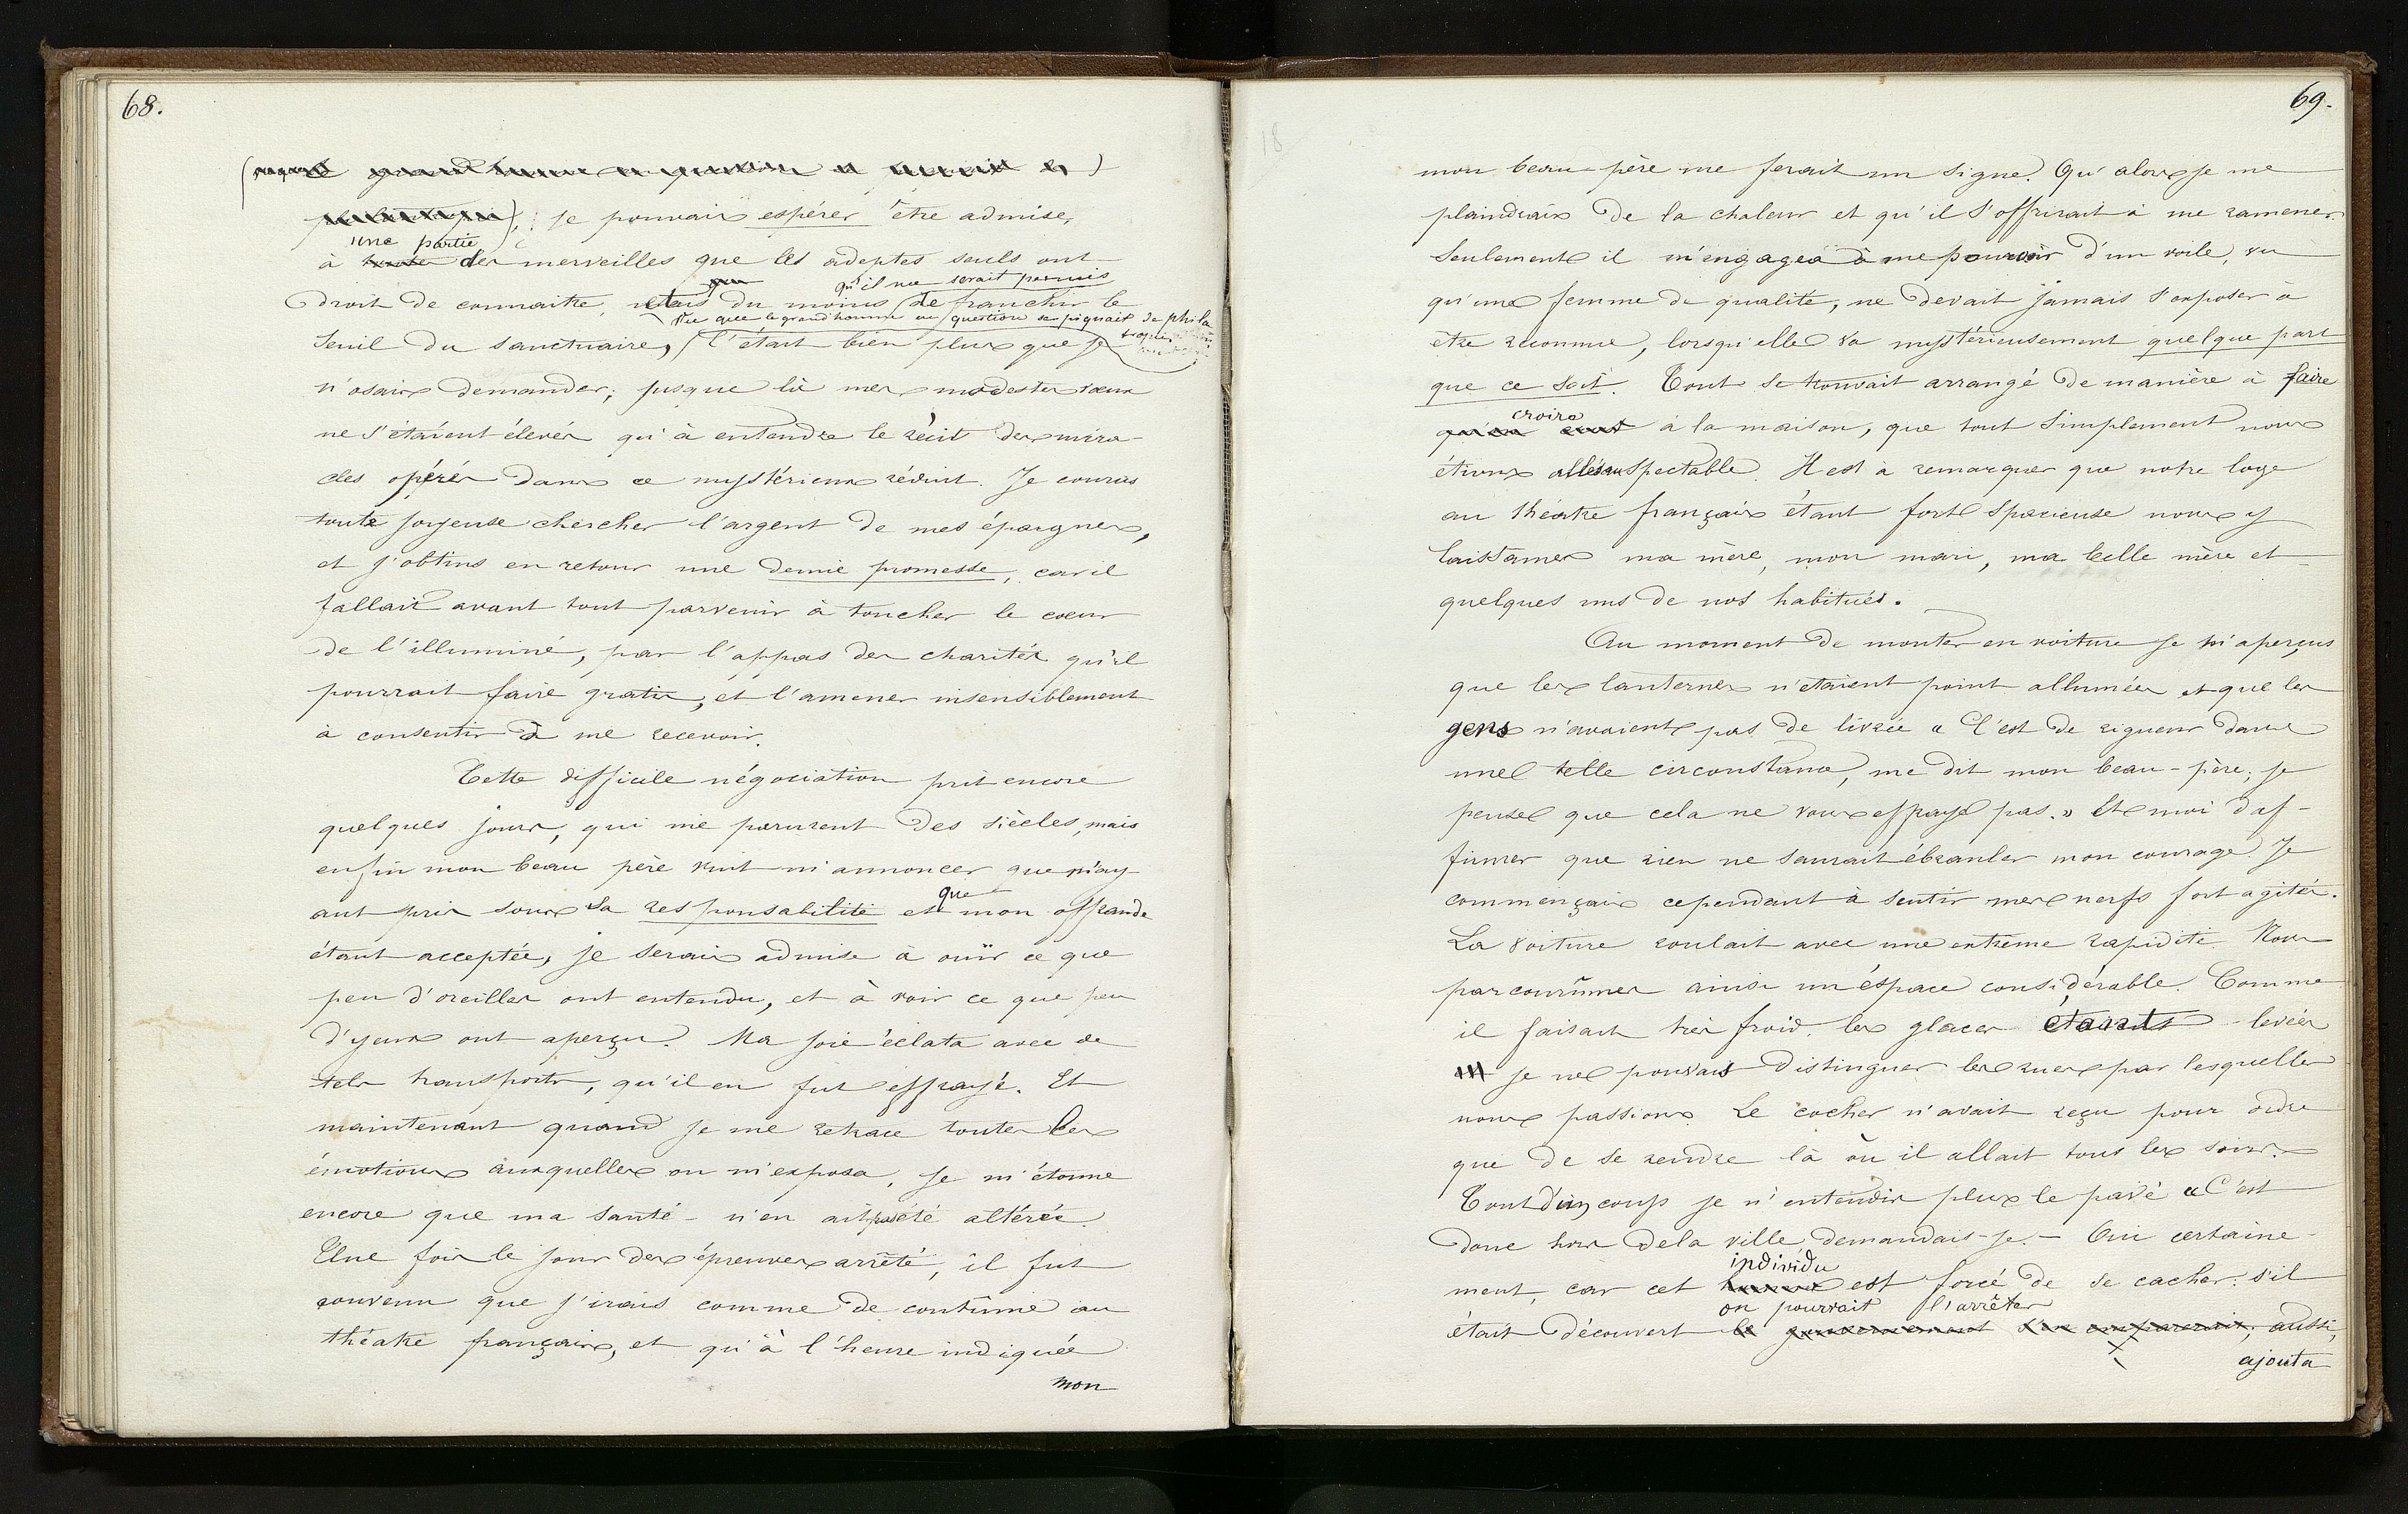 68.
je pouvais espérer être admise,
une partie
à toutes des merveilles que les adeptes seuls ont
qu'il me serait permis
droit de connaitre, du moins de franchir le
Vu que le grand homme en question se piquait de phila
tropie
seuil du sanctuaire, c'était bien plus que je
n'osais demander; jusque là mes modestes vœux
ne s'étaient élevés qu'à entendre le récit des mira-
cles opérés dans ce mystérieux réduit. Je courus
toute joyeuse chercher l'argent de mes épargnes,
et j'obtins en retour une demie promesse, car il
fallait avant tout parvenir à toucher le cœur
de l'illuminé, par l'appas des charités qu'il
pourrait faire gratis, et l'amener insensiblement
à consentir à me recevoir.
Cette difficile négociation prit encore
quelques jours, qui me parurent des siècles, mais
enfin mon beau père vint m'annoncer que m'ay-
que
ant pris sous sa responsabilité et mon offrande
étant acceptée, je serais admise à ouïr ce que
peu d'oreilles ont entendu, et à voir ce que peu
d'yeux ont aperçu. Ma joie éclata avec de
tels transports, qu'il en fut effrayé. Et
maintenant quand je me retrace toutes les
émotions auxquelles on m'exposa, je m'étonne
encore que ma santé n'en ait pas été altérée.
Une fois le jour des épreuves arrêté, il fut
convenu que j'irais comme de contûme au
théatre français, et qu'à l'heure indiquée
mon
18
69.
mon beau-père me ferait un signe. Qu'alors je me
plaindrais de la chaleur et qu'il s'offrirait à me ramener.
Seulement il m'engagea à me pourvoir d'un voile, vu
qu'une femme de qualité, ne devait jamais s'exposer à
être reconnue, lorsqu'elle va mystérieusement quelque part
que ce soit. Tout se trouvait arrangé de manière à faire
croire
à la maison, que tout simplement nous
étions allés au spectable. Il est à remarquer que notre loge
au théatre français étant fort spacieuse nous y
laissames ma mère, mon mari, ma belle mère et
quelques uns de nos habitués.
Au moment de monter en voiture je m'aperçus
que les lanternes n'etaient point allumées et que les
gens n'avaient pas de livrée « C'est de rigueur dans
une telle circonstance, me dit mon beau-père; je
pense que cela ne vous effraye pas. » Et moi d'af-
firmer que rien ne saurait ébranler mon courage. Je
commençais cependant à sentir mes nerfs fort agités.
La voiture roulait avec une extrême rapidité. Nous
parcourûmes ainsi un éspace considérable. Comme
il faisait très froid, les glaces étaients levées
je ne pouvais distinguer les rues par lesquelles
nous passions. Le cocher n'avait reçu pour ordre
que de se rendre là où il allait tous les soirs.
Tout d'un coup je n'entendis plus le pavé « C'est
donc hors de la ville demandais-je. — Oui certaine-
individu
ment, car cet homme est forcé de se cacher: s'il
on pourrait l'arrêter
était découvert le gouvernement s'en emparerait, aussi,
ajouta